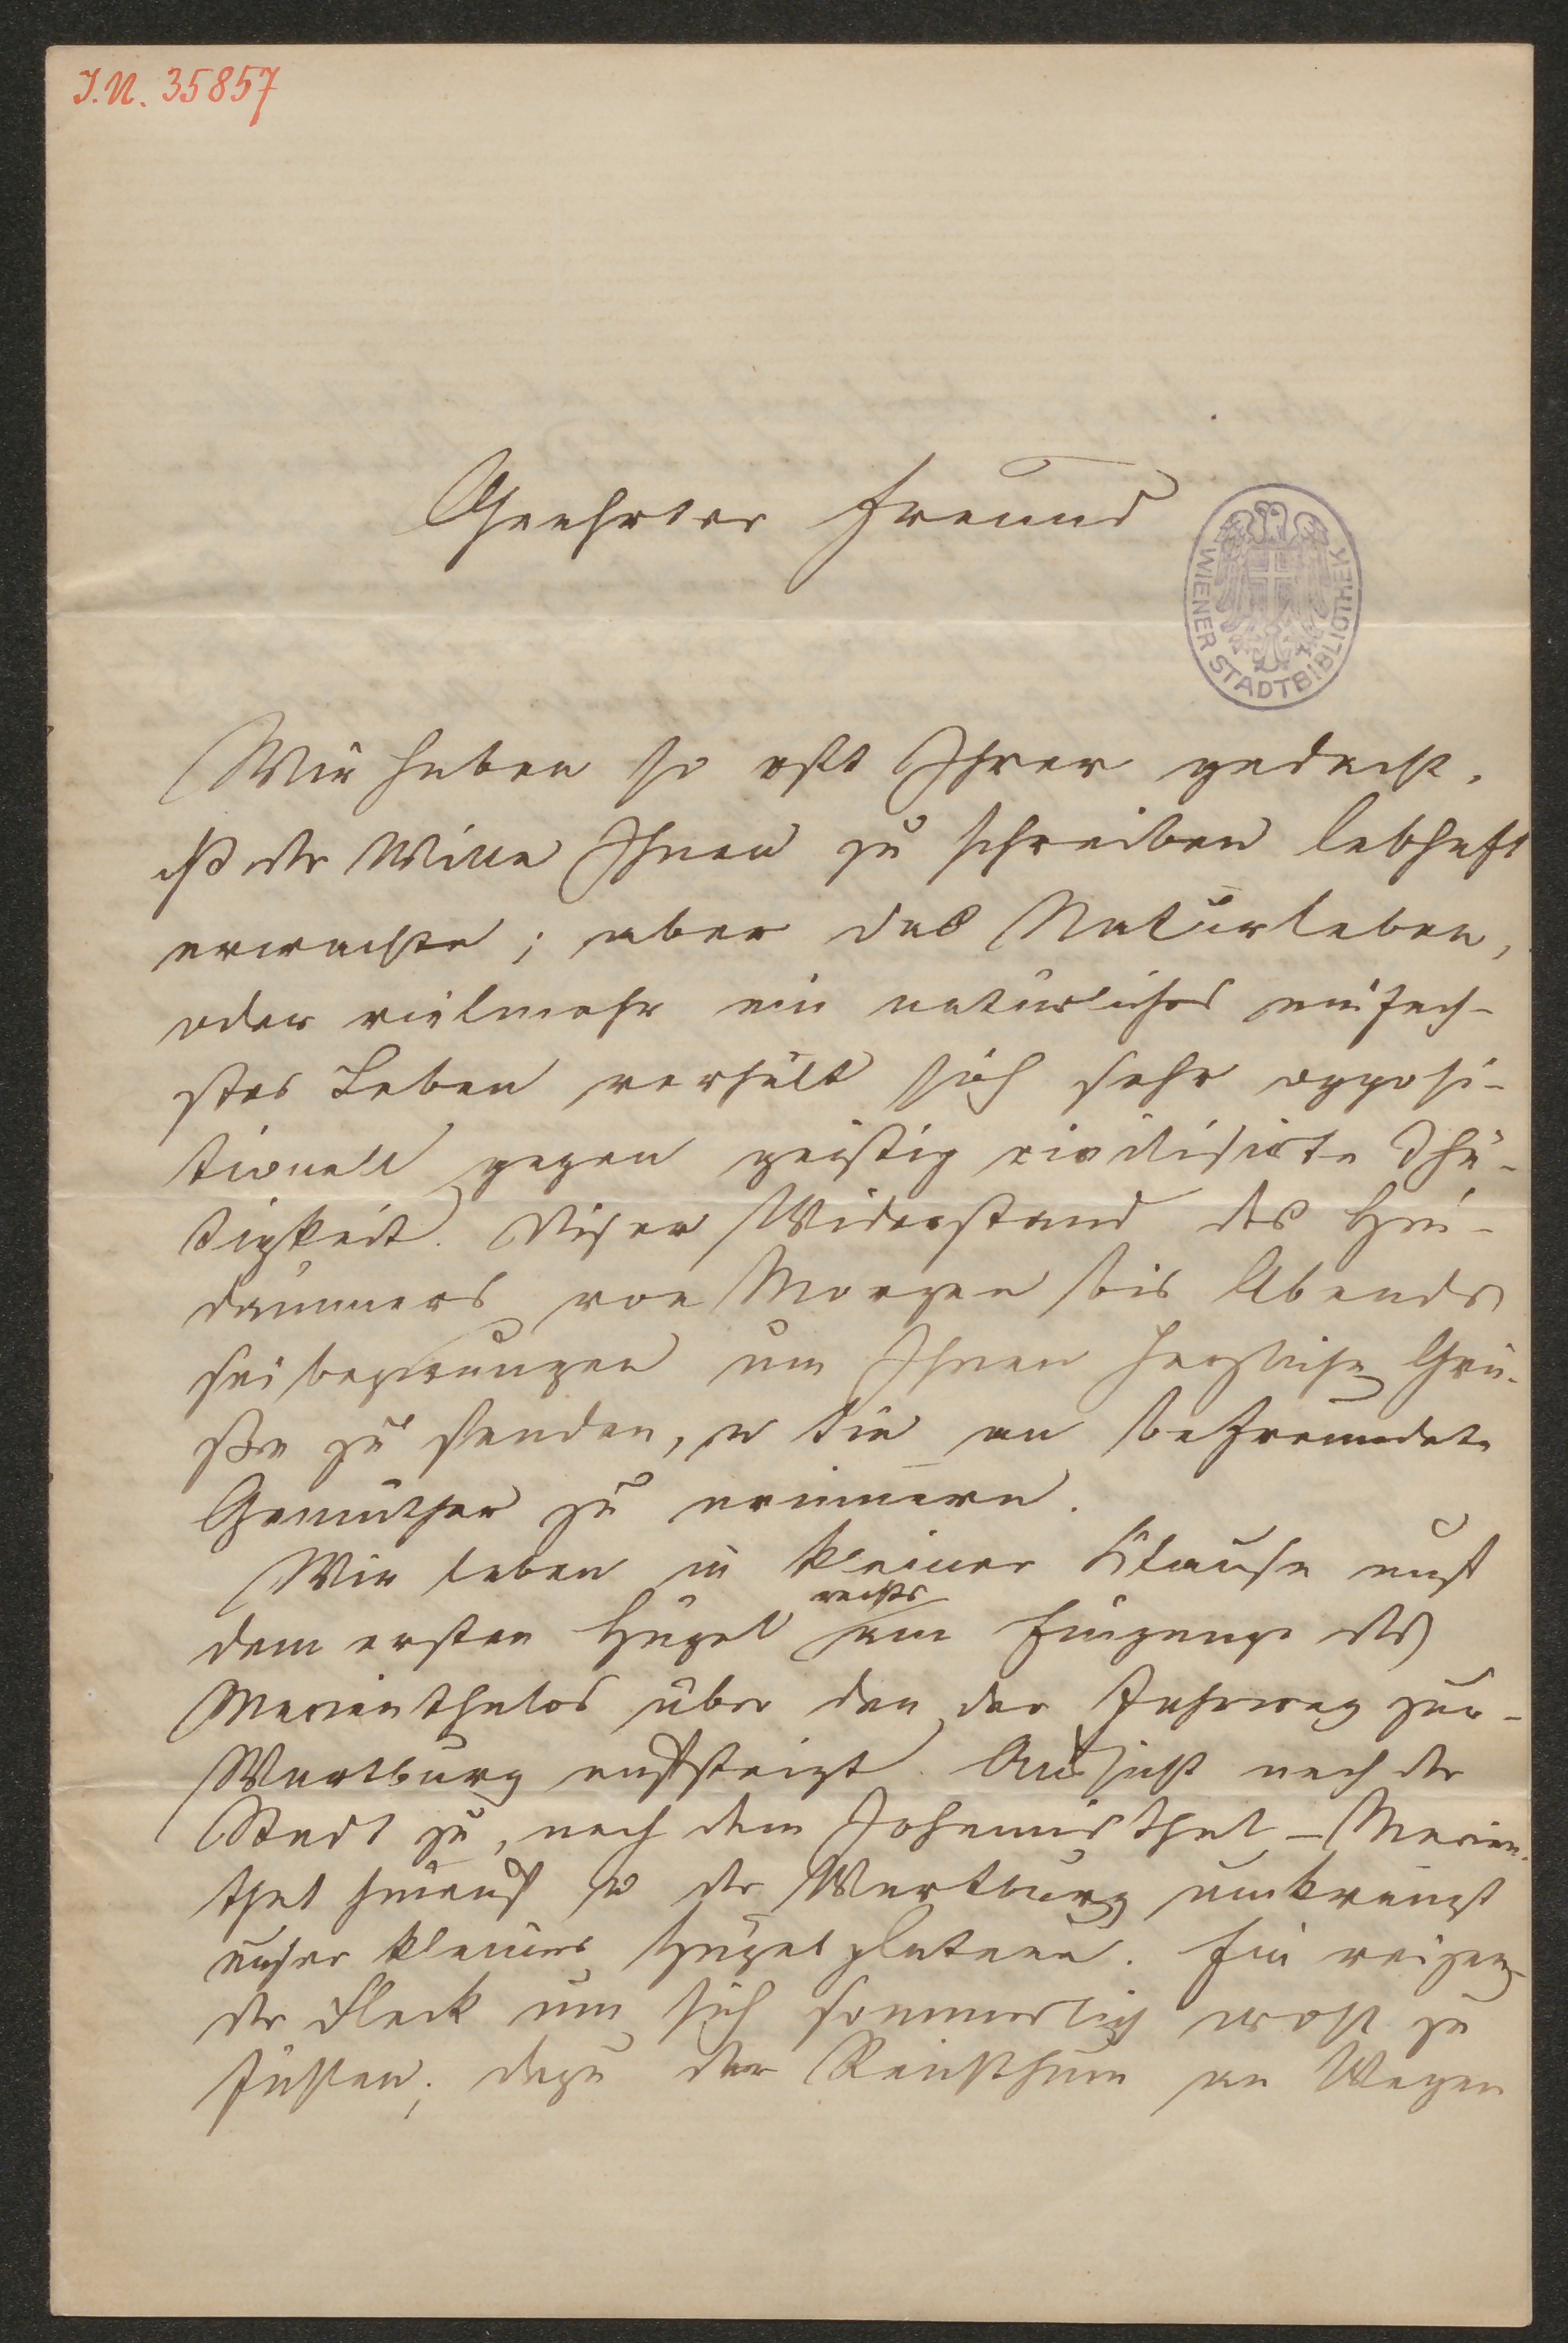 I.N. 35857
Geehrter Freund
WIENER STADTBIBLIOTHEK
Wir haben so oft Ihrer gedacht,
daß der Wille Ihnen zu schreiben lebhaft
erwachte; aber das Naturleben,
oder vielmehr ein natürliches einfach-
stes Leben verhält sich sehr opposi-
tionell gegen geistig civilisirte Thä-
tigkeit. Dieser Widerstand des Hin-
dämmerns von Morgen bis Abends
sei bezwungen um Ihnen herzliche Grü-
ße zu senden, u Sie an befreundete
Gemüther zu erinnern.
Wir leben in kleiner Klause auf
dem ersten Hügel rechts am Eingange des
Marienthales über den der Fahrweg zur
Wartburg aufsteigt. Aussicht nach der
Stadt zu, nach dem Johannisthal – Marien-
thal hinauf u der Wartburg umkränzt
unser kleines Hügelplateau. Ein reizen-
der Fleck um sich sommerlich wohl zu
fühlen; dazu der Reichthum an Wegen